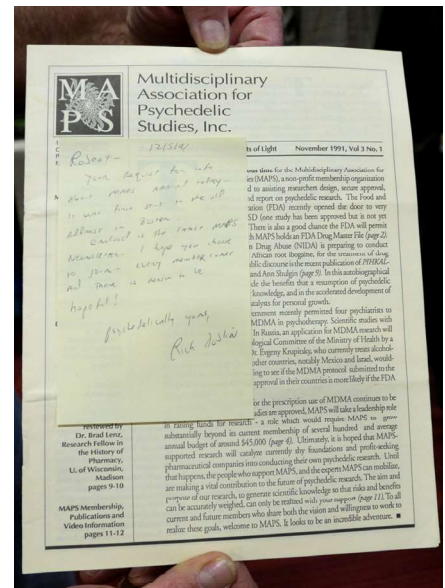 MAPS
Multidisciplinary
Association for
Psychedelic
Studies, Inc.
ts of Light November 1991, Vol 3 No. 1
12/5/91
Robert-
Your request for info
about MAPS
to the old
address in Boston.
is the MAPS
Newsletter. I hope you choose
to join - every member counts
and there is reason to be
hopeful!
Psychedelically yours,
Rick Doblin
times for the Multidisciplinary Association for
(MAPS), a non-profit membership organization
d to assisting researchers design, secure approval,
nd report on psychedelic research. The Food and
ration (FDA) recently opened the door to very
SD (one study has been approved but is not yet
There is also a good chance the FDA will permit
h MAPS holds an FDA Drug Master File (page 2).
n Drug Abuse (NIDA) is preparing to conduct
African root ibogaine, for the treatment of drug
blic discourse is the recent publication of PIHKAL:
and Ann Shulgin (page 9). In this autobiographical
de the benefits that a resumption of psychedelic
knowledge, and in the accelerated development of
atalysts for personal growth.
ernment recently permitted four psychiatrists to
MDMA in psychotherapy. Scientific studies with
In Russia, an application for MDMA research will
ological Committee of the Ministry of Health by a
Dr. Evgeny Krupitsky, who currently treats alcohol-
other countries, notably Mexico and Israel, would-
ing to see if the MDMA protocol submitted to the
approval in their countries is more likely if the FDA
for the prescription use of MDMA continues to be
udies are approved, MAPS will take a leadership role
in raising funds for research - a role which would require MAPS to grow
substantially beyond its current membership of several hundred and average
annual budget of around $45,000 (page 4). Ultimately, it is hoped that MAPS-
supported research will catalyze currently shy foundations and profit-seeking
pharmaceutical companies into conducting their own psychedelic research. Until
that happens, the people who support MAPS, and the experts MAPS can mobilize,
are making a vital contribution to the future of psychedelic research. The aim and
purpose of our research, to generate scientific knowledge so that risks and benefits
can be accurately weighed, can only be realized with your support (page 11). To all
current and future members who share both the vision and willingness to work to
realize these goals, welcome to MAPS. It looks to be an incredible adventure. ■
reviewed by
Dr. Brad Lenz,
Research Fellow in
the History of
Pharmacy,
U. of Wisconsin,
Madison
pages 9-10
MAPS Membership,
Publications and
Video Information
pages 11-12